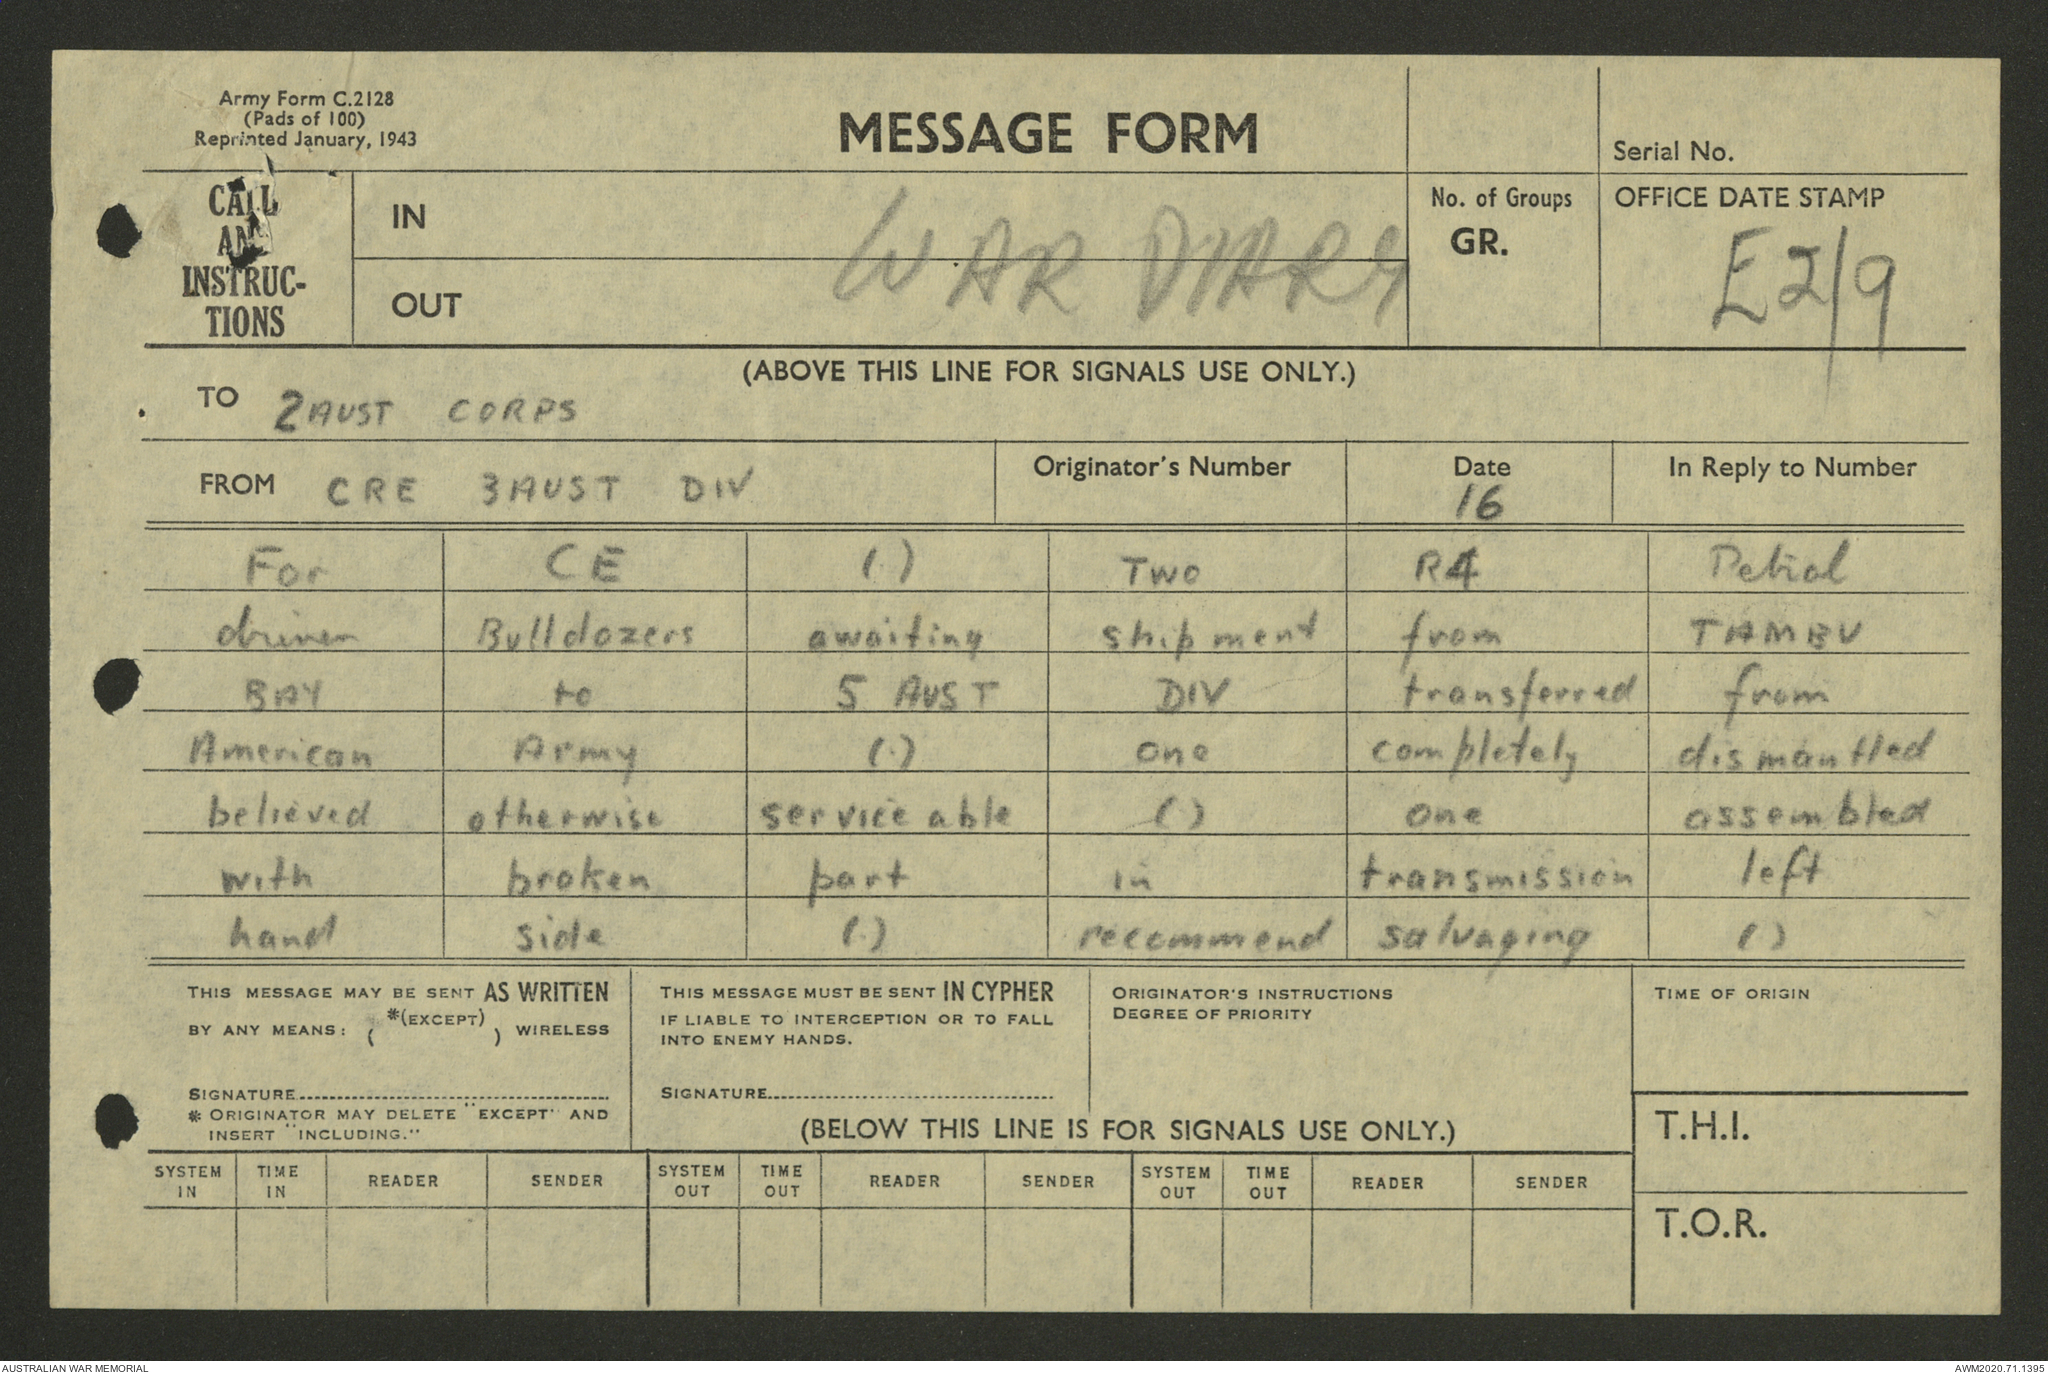 Army Form C.2128
(Pads of 100)
Reprinted January, 1943
MESSAGE FORM
Serial No.
CALL
AND
INSTRUC-
TIONS
IN
OUT
WAR DIARY
No. of Groups
GR.
OFFICE DATE STAMP
E2/9
(ABOVE THIS LINE FOR SIGNALS USE ONLY.)
TO 2 AUST CORPS
FROM CRE 3 AUST DIV
Originator's Number
Date
16
In Reply to Number
For CE (.) Two R4 Petrol
driven Bulldozers awaiting shipment from TAMBU
BAY to 5 AUST DIV transferred from
American Army (.) one completely dismantled
believed otherwise serviceable () one assembled
with broken part in transmission left
hand side (.) recommend salvaging ()
THIS MESSAGE MAY BE SENT AS WRITTEN
BY ANY MEANS: ( *(EXCEPT) ) WIRELESS
SIGNATURE
* ORIGINATOR MAY DELETE "EXCEPT" AND
INSERT "INCLUDING."
THIS MESSAGE MUST BE SENT IN CYPHER
IF LIABLE TO INTERCEPTION OR TO FALL
INTO ENEMY HANDS.
SIGNATURE
ORIGINATOR'S INSTRUCTIONS
DEGREE OF PRIORITY
TIME OF ORIGIN
(BELOW THIS LINE IS FOR SIGNALS USE ONLY.)
T.H.I.
T.O.R.
SYSTEM IN TIME IN READER SENDER SYSTEM OUT TIME OUT READER SENDER SYSTEM OUT TIME OUT READER SENDER
AUSTRALIAN WAR MEMORIAL
AWM2020.71.1395